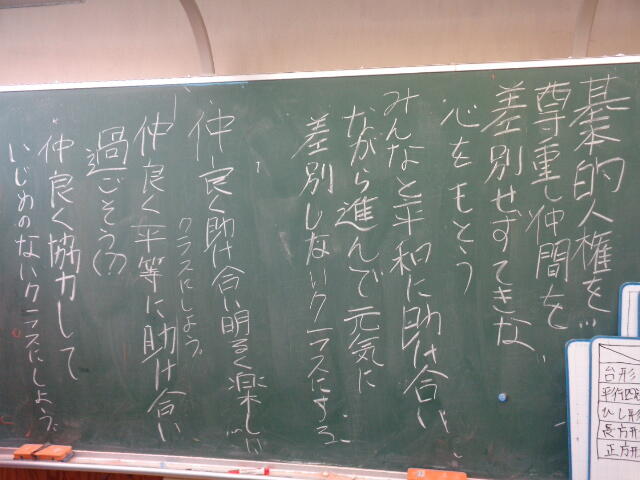 基本的人権を…
尊重し仲間を
差別せずすてきな
心をもとう
みんなと平和に助け合い
ながら進んで元気に
差別しないクラスにする
仲良く助け合い明るく楽しい…
クラスにしよう。
仲良く平等に助け合い
過ごそう(?)
仲良く協力して
いじめのないクラスにしよう。
台形
平行四
ひし形
長方形
正方形